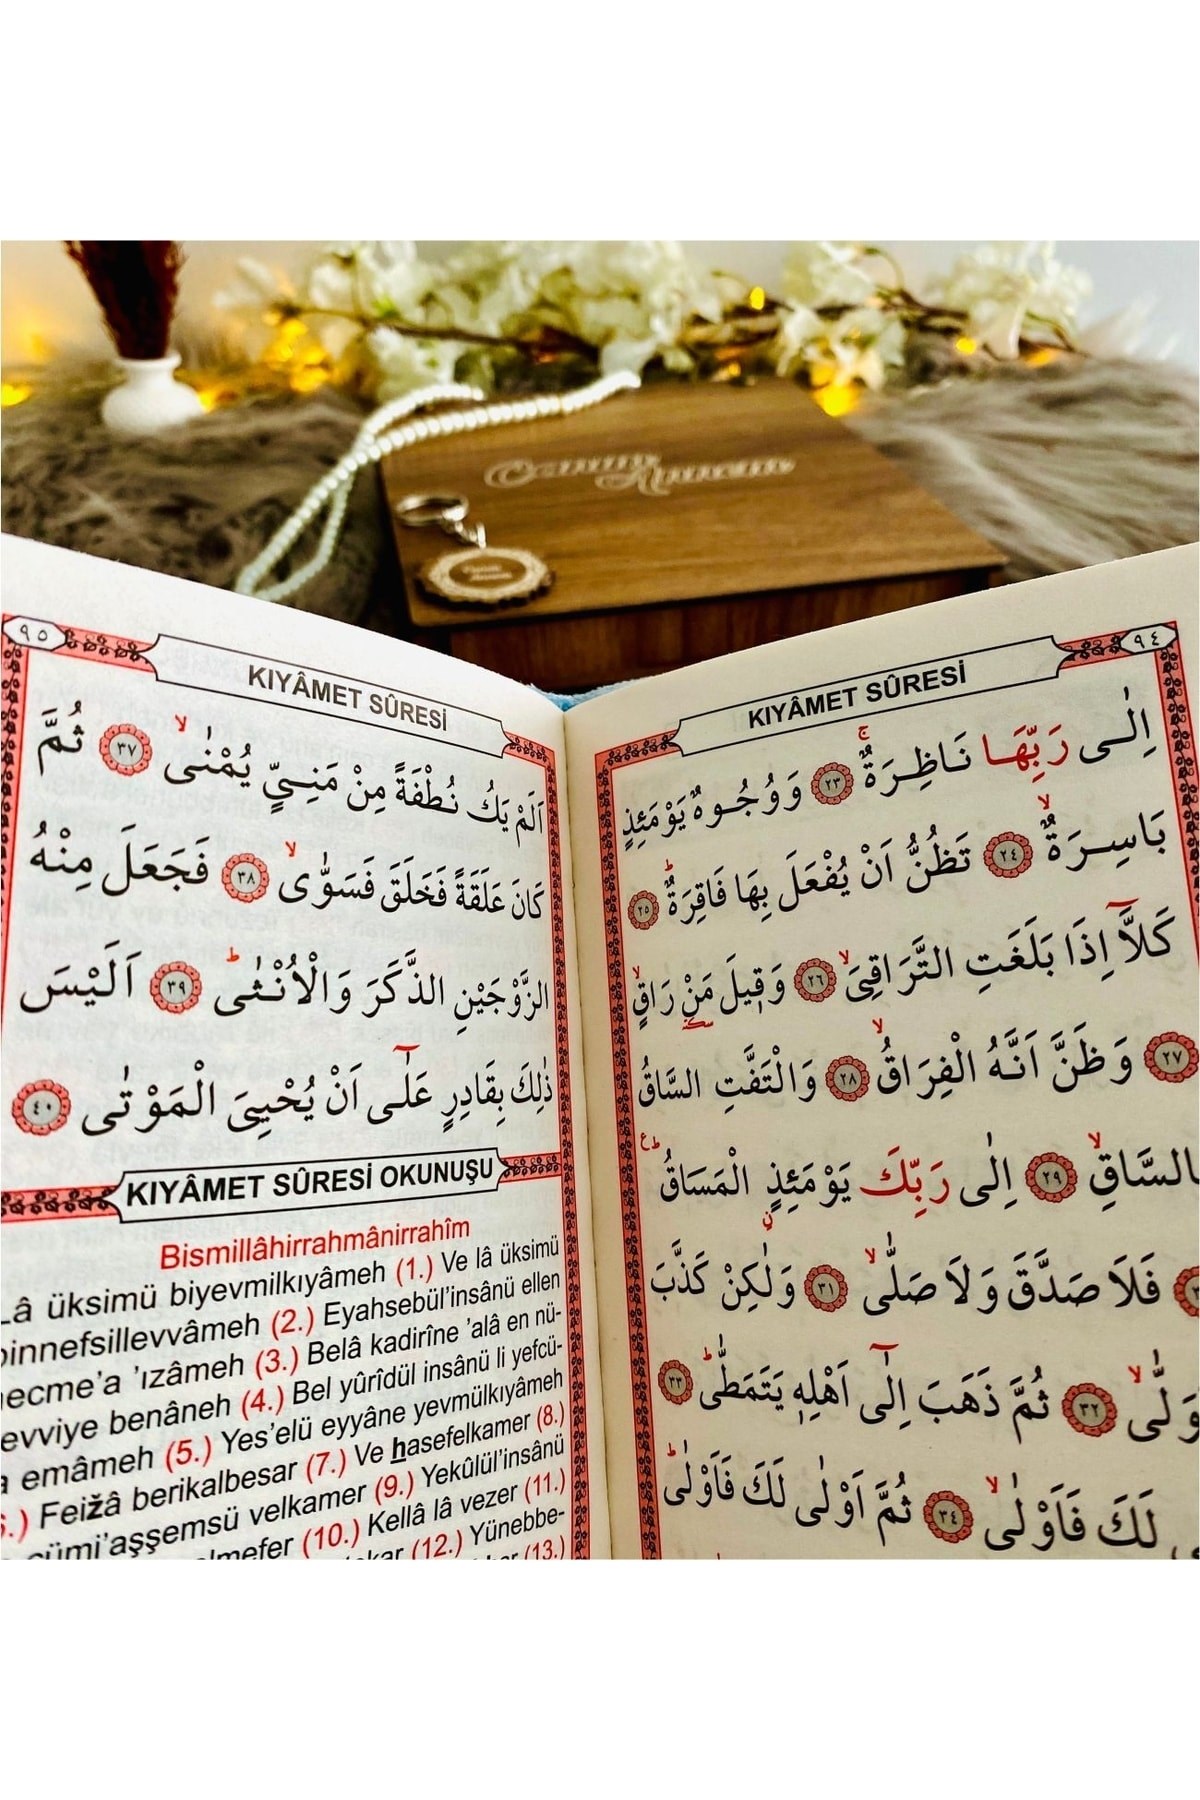 ٩٤
KIYÂMET SÛRESİ
اِلٰى رَبِّهَا نَاظِرَةٌۚ ﴿٢٣﴾ وَوُجُوهٌ يَوْمَئِذٍ
بَاسِرَةٌۙ ﴿٢٤﴾ تَظُنُّ اَنْ يُفْعَلَ بِهَا فَاقِرَةٌۜ ﴿٢٥﴾
كَلَّٓا اِذَا بَلَغَتِ التَّرَاقِيَۙ ﴿٢٦﴾ وَقٖيلَ مَنْ رَاقٍۙ
﴿٢٧﴾ وَظَنَّ اَنَّهُ الْفِرَاقُۙ ﴿٢٨﴾ وَالْتَفَّتِ السَّاقُ
بِالسَّاقِۙ ﴿٢٩﴾ اِلٰى رَبِّكَ يَوْمَئِذٍ الْمَسَاقُۜ
فَلَا صَدَّقَ وَلَا صَلّٰىۙ ﴿٣١﴾ وَلٰكِنْ كَذَّبَ
وَلّٰىۙ ﴿٣٢﴾ ثُمَّ ذَهَبَ اِلٰٓى اَهْلِهٖ يَتَمَطّٰىۜ ﴿٣٣﴾
لَكَ فَاَوْلٰىۙ ﴿٣٤﴾ ثُمَّ اَوْلٰى لَكَ فَاَوْلٰىۜ
٩٥
KIYÂMET SÛRESİ
اَلَمْ يَكُ نُطْفَةً مِنْ مَنِيٍّ يُمْنٰىۙ ﴿٣٧﴾ ثُمَّ
كَانَ عَلَقَةً فَخَلَقَ فَسَوّٰىۙ ﴿٣٨﴾ فَجَعَلَ مِنْهُ
الزَّوْجَيْنِ الذَّكَرَ وَالْاُنْثٰىۜ ﴿٣٩﴾ اَلَيْسَ
ذٰلِكَ بِقَادِرٍ عَلٰٓى اَنْ يُحْيِيَ الْمَوْتٰى ﴿٤٠﴾
KIYÂMET SÛRESİ OKUNUŞU
Bismillâhirrahmânirrahîm
Lâ üksimü biyevmilkıyâmeh (1.) Ve lâ üksimü
binnefsillevvâmeh (2.) Eyahsebül'insânü ellen
necme'a 'ızâmeh (3.) Belâ kadirîne 'alâ en nü-
sevviye benâneh (4.) Bel yûrîdül insânü li yefcü-
emâmeh (5.) Yes'elü eyyâne yevmülkıyâmeh
(6.) Feižâ berikalbesar (7.) Ve hasefelkamer (8.)
cümi'aşşemsü velkamer (9.) Yekûlül'insânü
elmefer (10.) Kellâ lâ vezer (11.)
(12.) Yünebbe-
(13.)